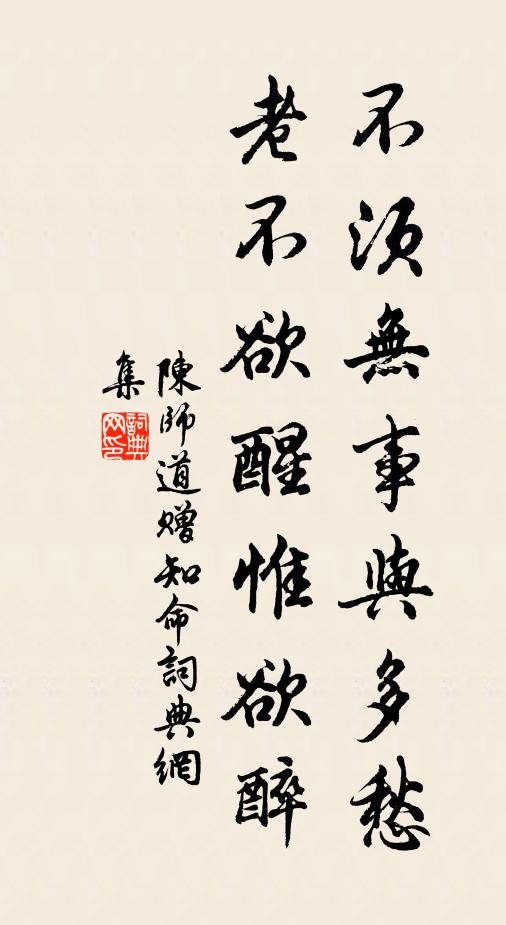 不須無事與多愁
老不欲醒惟欲醉
陳師道贈知命詞典網
集
詞典
网印